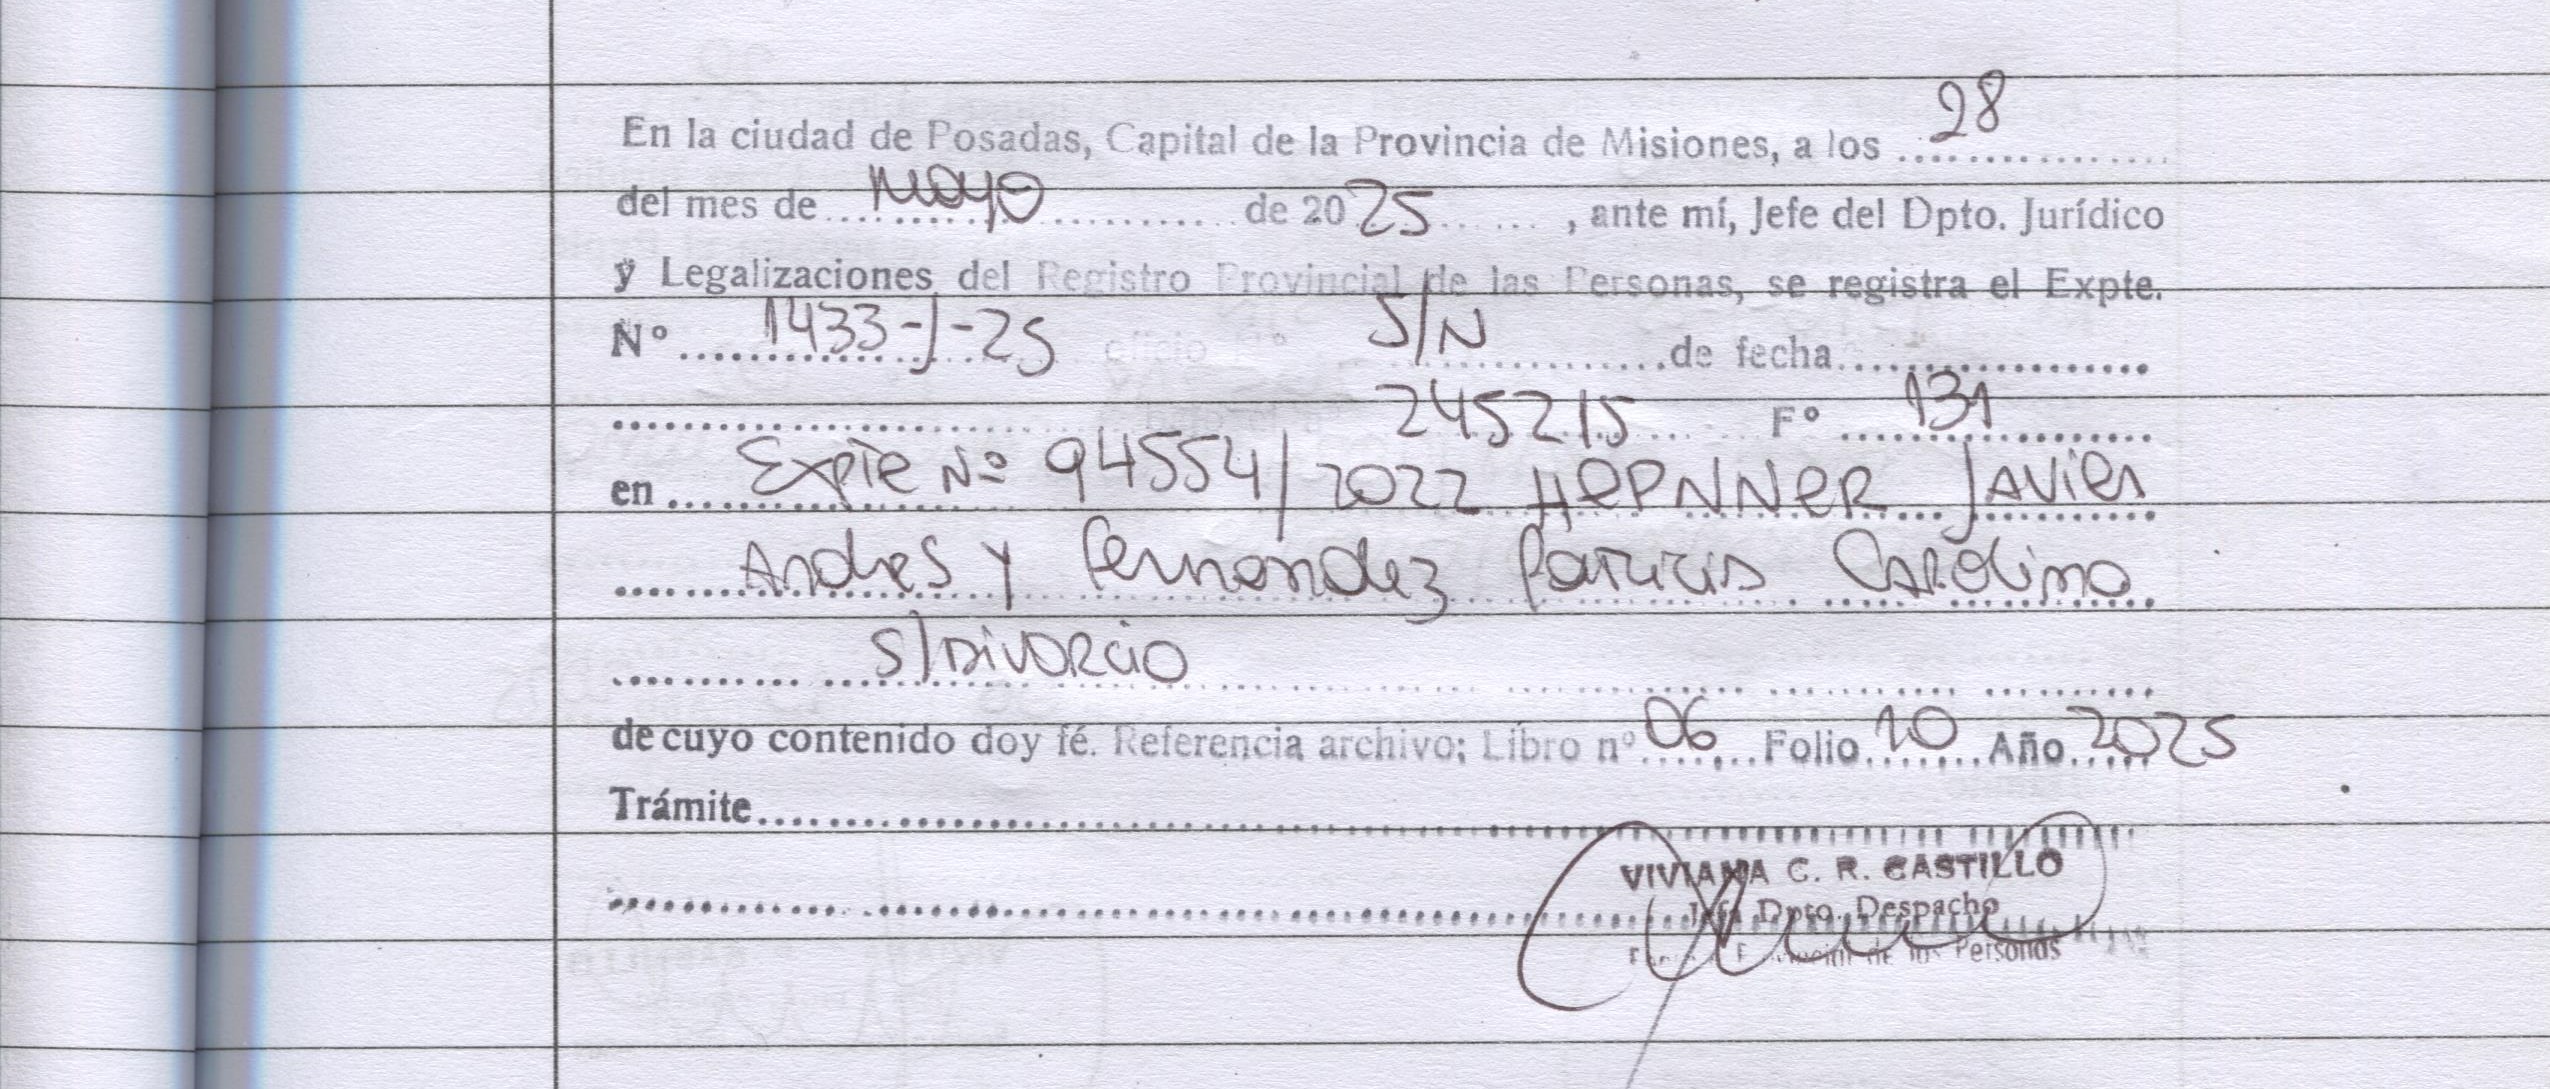 En la ciudad de Posadas, Capital de la Provincia de Misiones, a los 28
del mes de mayo de 2025, ante mí, Jefe del Dpto. Jurídico
y Legalizaciones del Registro Provincial de las Personas, se registra el Expte.
Nº 1433-J-25 oficio Nº S/N de fecha
245215 Fº 131
en Expte Nº 94554/2022 HEPNNER JAVIER
Andres y Fernandez Patricia Carolina
S/DIVORCIO
de cuyo contenido doy fé. Referencia archivo; Libro nº 06 Folio 10 Año 2025
Trámite
VIVIANA C. R. CASTILLO
Jefa Dpto. Despacho
de las Personas